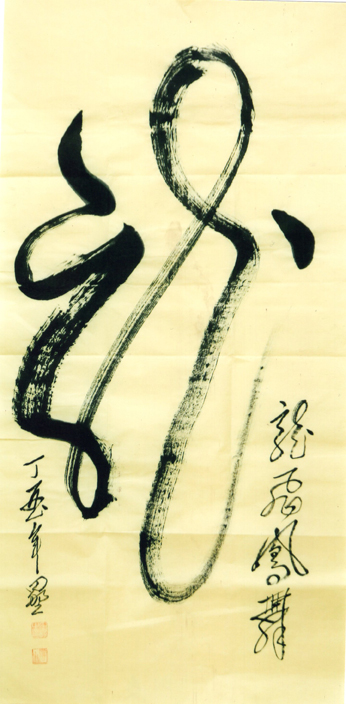 龍
龍飛鳳舞
丁年